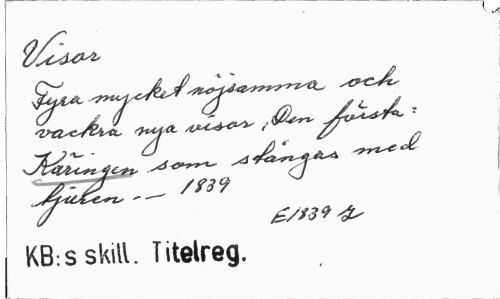 Visor
Fyra mycket nöjsamma och
vackra nya visor, Den första:
Käringen som stångas med
tjuren. -- 1839
E1839 g
KB:s skill. Titelreg.